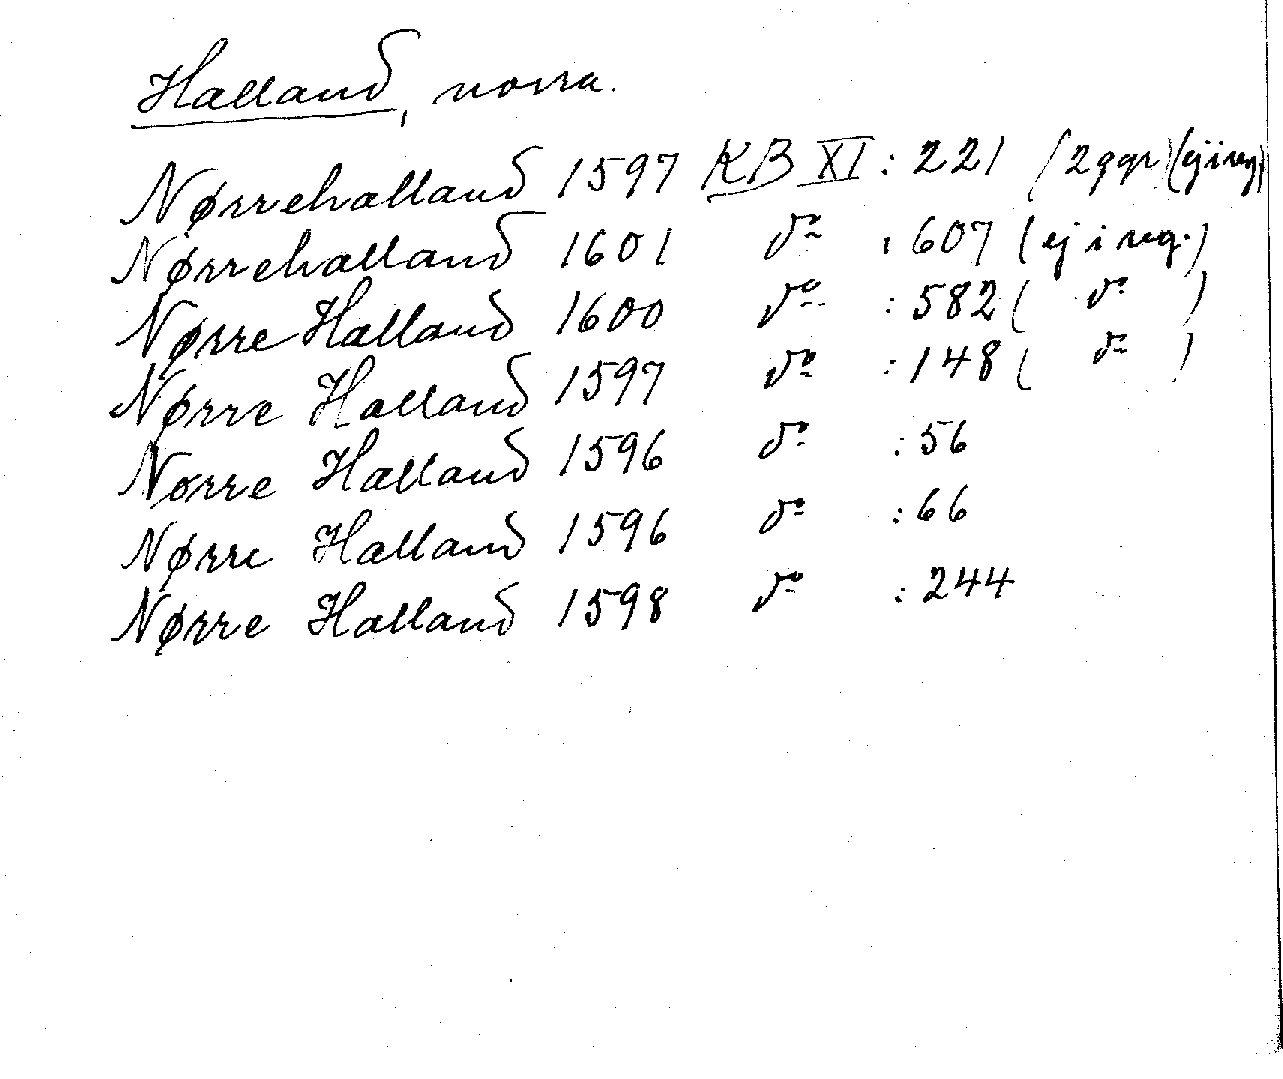 Halland, norra.
Nørrehalland 1597 KB XI : 221 (2 ggr) (ej i reg.)
Nørrehalland 1601 do : 607 (ej i reg.)
Nørre Halland 1600 do : 582 ( do )
Nørre Halland 1597 do : 148 ( do )
Nørre Halland 1596 do : 56
Nørre Halland 1596 do : 66
Nørre Halland 1598 do : 244